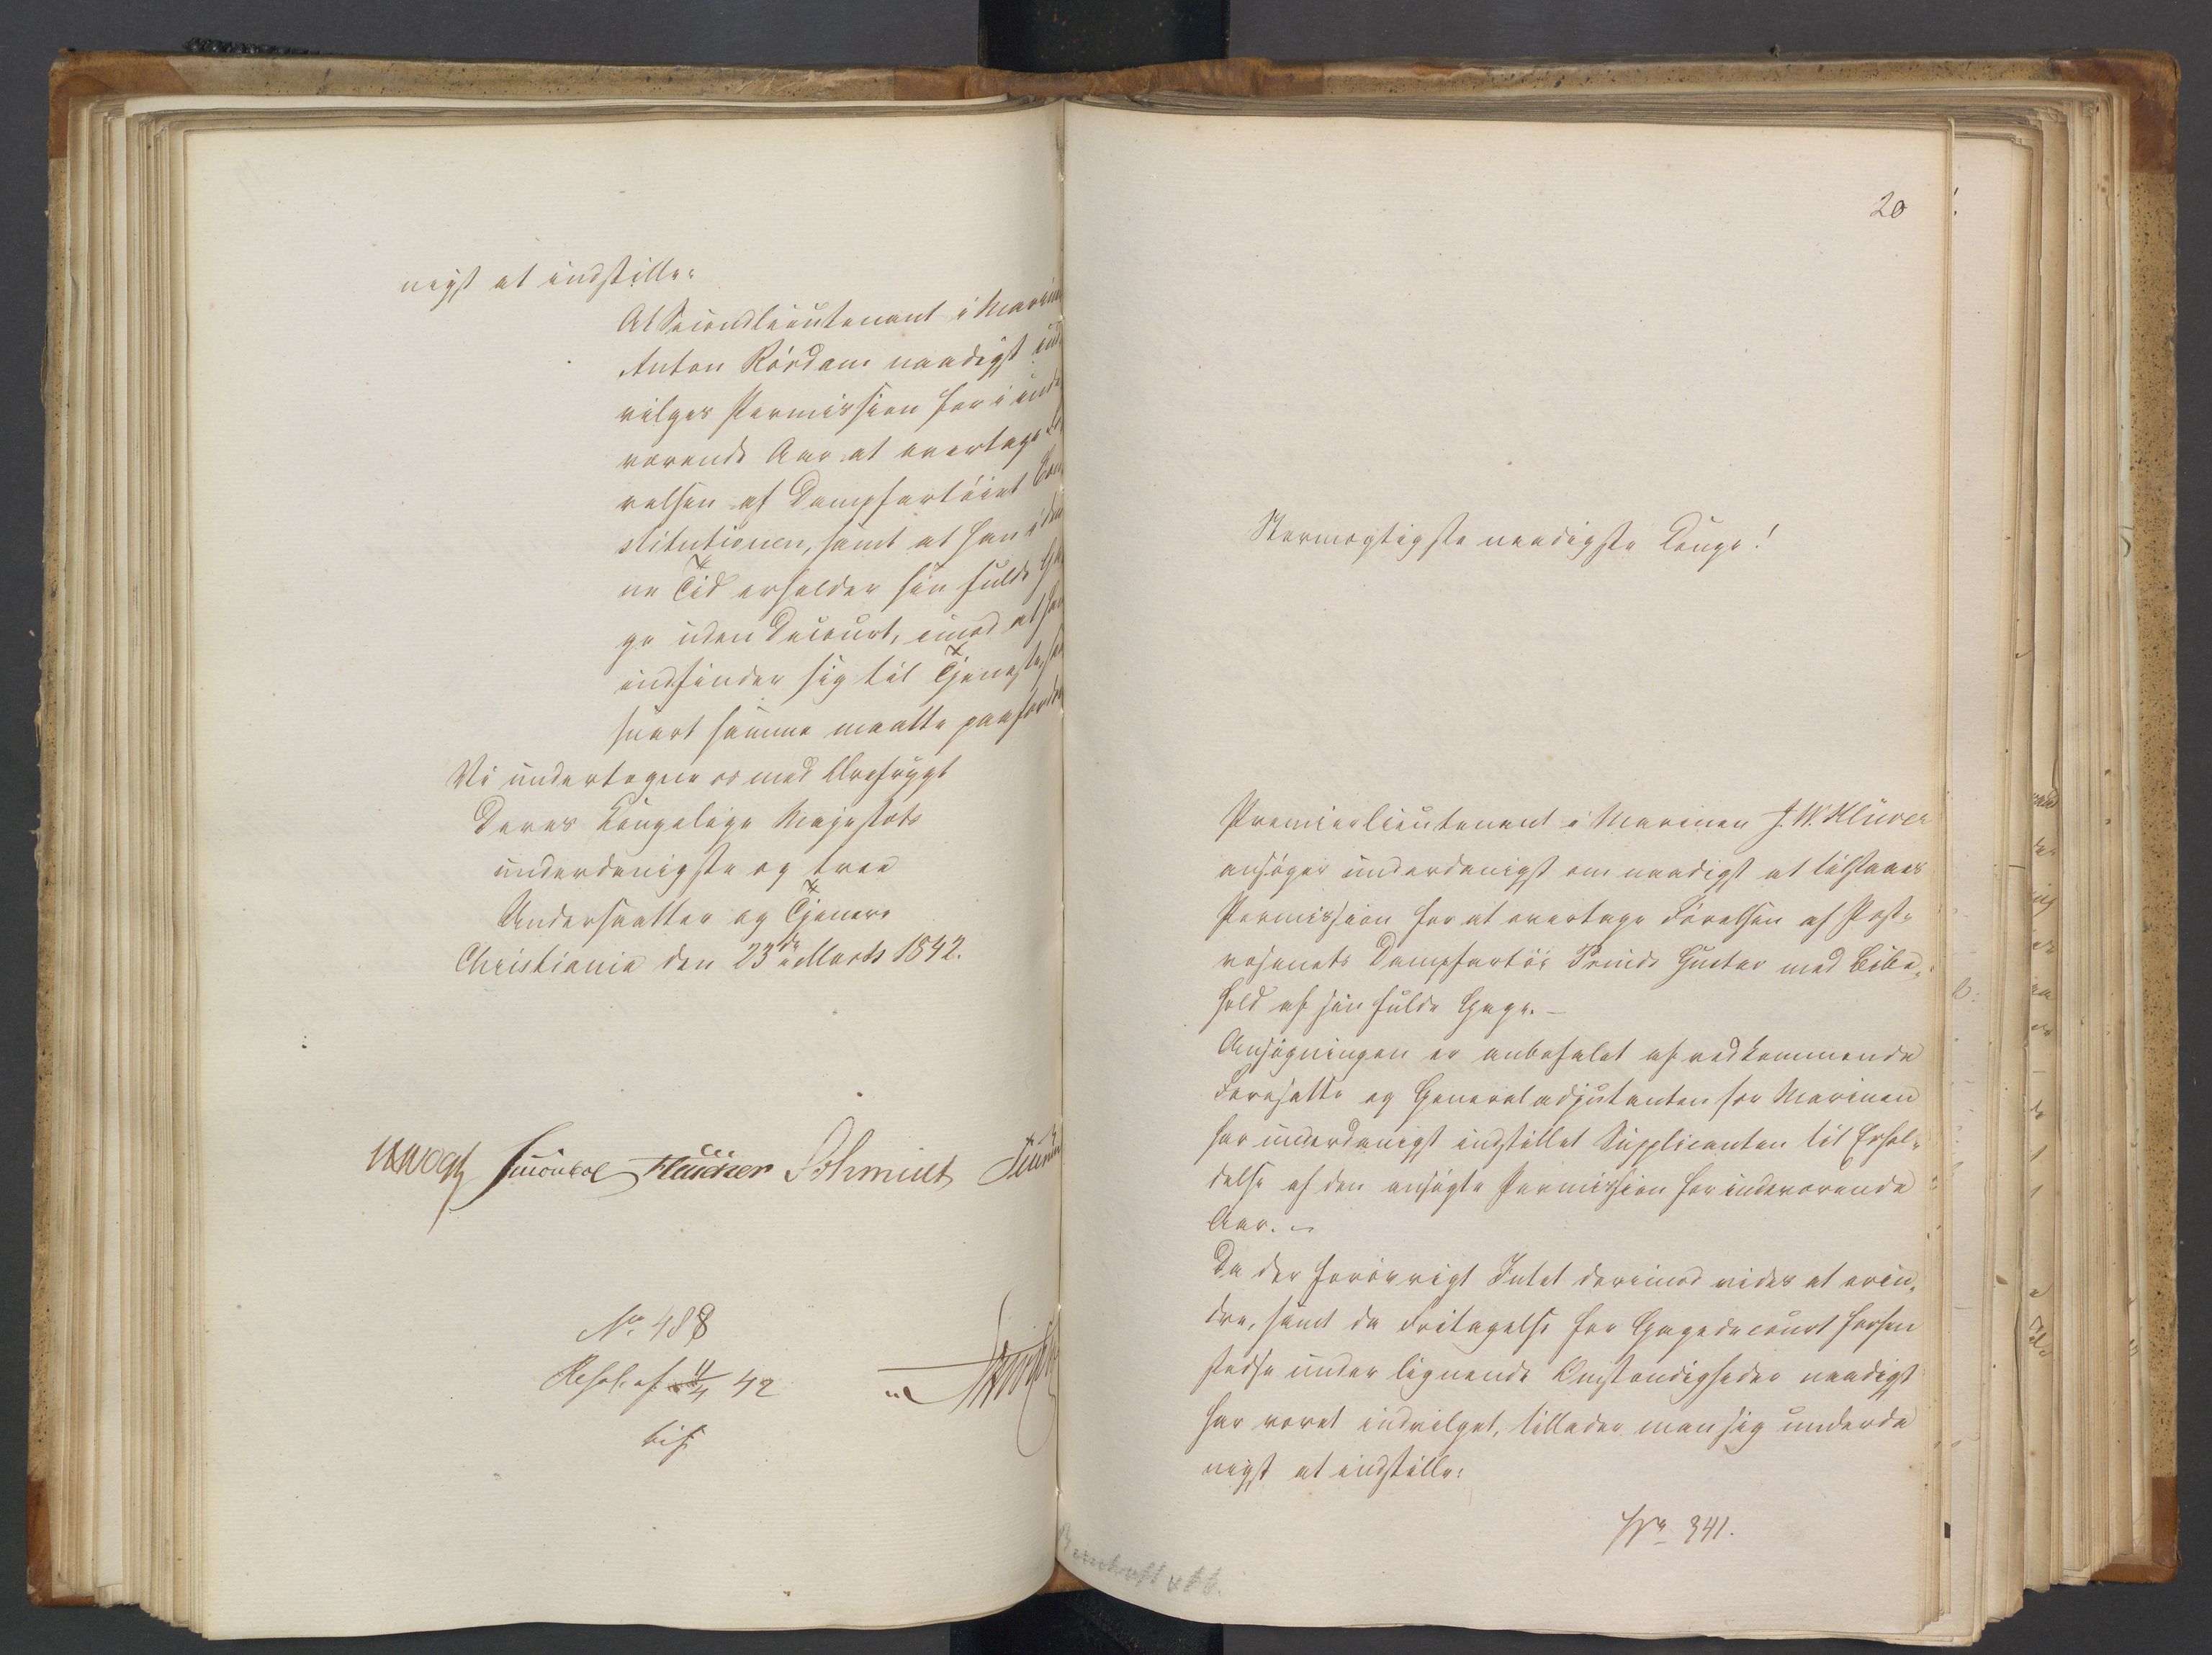 nigst at indstille:
At Secondlieutenant i Marinen
Anton Rördam naadigst ind
vilges Permission for i inde
værende Aar at overtage Fö
relsen af Dampfartöiet Con
stitutionen, samt at han i den
ne Tid erholder sin fulde Ga
ge uden Decourt, imod at han
indfinder sig til Tjeneste, saa
snart samme maatte paafordres
Vi undertegne os med Ærefrygt
Deres Kongelige Majestæts
underdanigste og troe
Undersaatter og Tjenere
Christiania den 23de Marts 1842.
Vogt Schmidt
No 488
Resol. af 11/4 42
20
Stormægtigste naadigste Konge!
Premierlieutenant i Marinen J. W. Klüver
ansöger underdanigst om naadigst at tilstaaes
Permission for at overtage Förelsen af Post-
væsenets Dampfartöi Prinds Gustav med Bibe-
hold af sin fulde Gage. –
Ansögningen er anbefalet af vedkommende
Foresatte og Generaladjutanten for Marinen
har underdanigst indstillet Supplicanten til Erhol-
delse af den ansögte Permission for indeværende
Aar. –
Da der forövrigt Intet derimod vides at erin-
dre, samt da Fritagelse for Gagedecourt forhen
stedse under lignende Omstændigheder naadigst
har været indvilget, tillader man sig underda
nigst at indstille:
No 341.